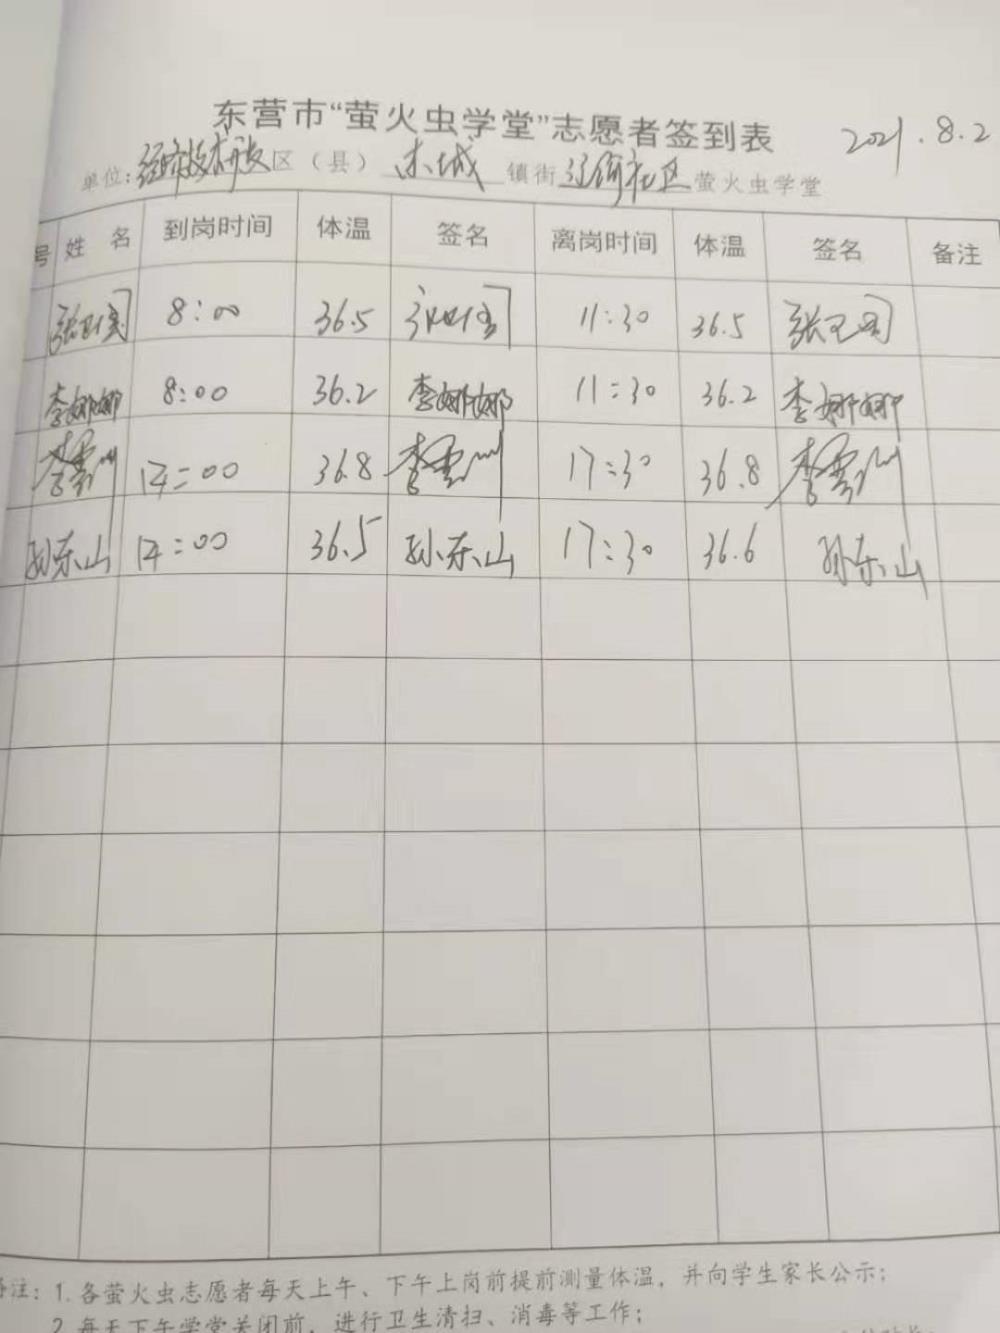 东营市“萤火虫学堂”志愿者签到表 2021.8.2
单位:经济技术开发区(县)东城镇街辽河社区萤火虫学堂
号 姓 名 到岗时间 体温 签名 离岗时间 体温 签名 备注
张卫国 8:00 36.5 张卫国 11:30 36.5 张卫国
李娜娜 8:00 36.2 李娜娜 11:30 36.2 李娜娜
14:00 36.8 17:30 36.8
孙东山 14:00 36.5 孙东山 17:30 36.6 孙东山
备注:1.各萤火虫志愿者每天上午、下午上岗前提前测量体温,并向学生家长公示;
2.每天下午学堂关闭前,进行卫生清扫、消毒等工作;